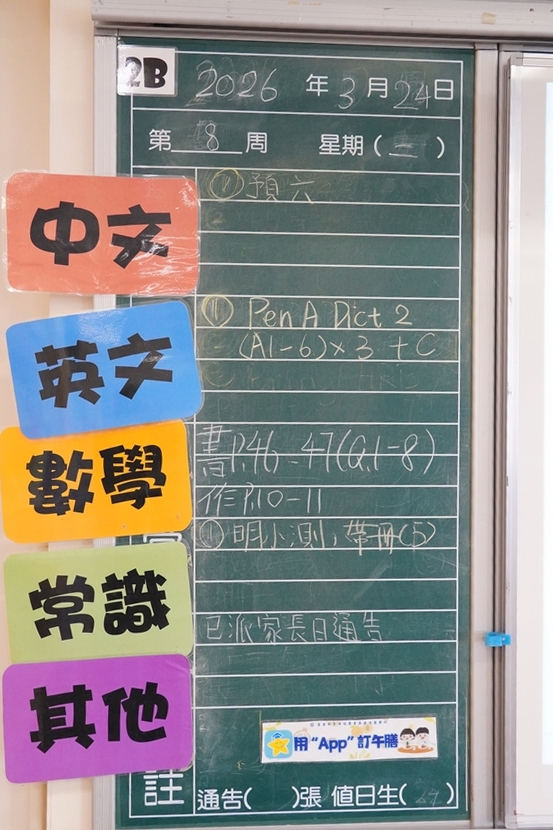 2B
2026 年 3 月 24 日
第 8 周 星期 ( 二 )
中文
① 預六
英文
⑪ Pen A Dict 2
(A1-6)×3 + C
數學
書P.46-47(Q.1-8)
作P.10-11
① 明小測，帶冊(5)
常識
已派家長日通告
其他
用“App”訂午膳
註
通告( )張 值日生( 24 )